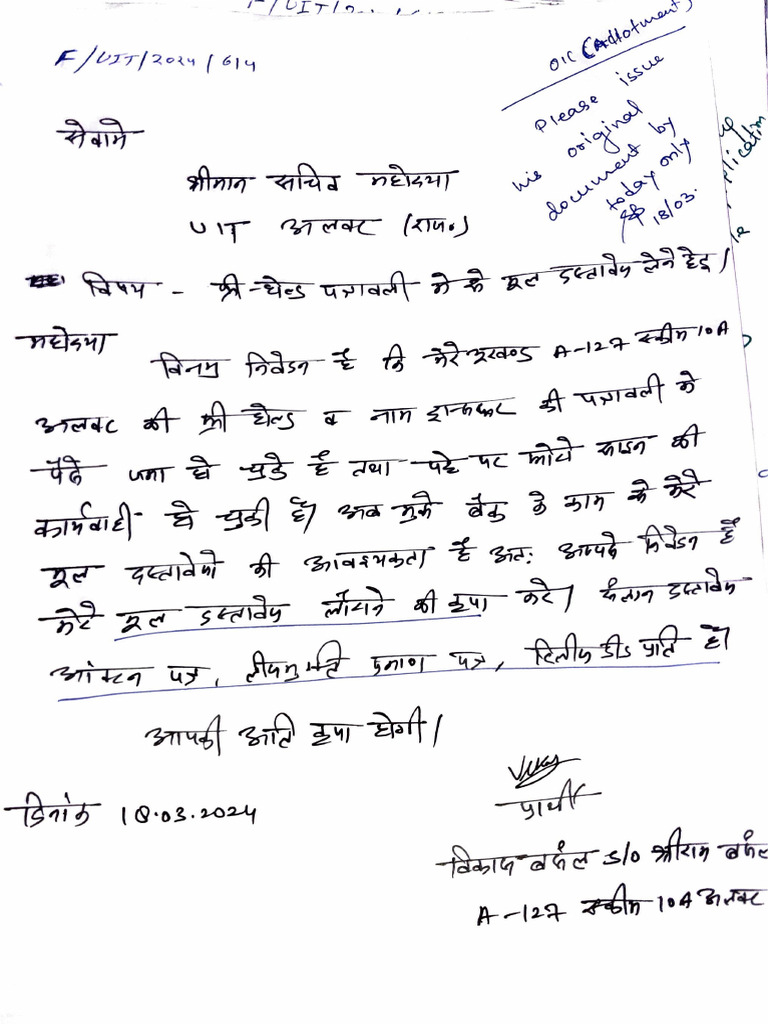 F/UIT/2024/614
OIC (Allotment)
Please issue
his original
document by
today only
18/03.
सेवामे
श्रीमान सचिव महोदया
UIT अलवर (राज०)
विषय - फ्री-होल्ड पत्रावली मे से मूल दस्तावेज लेने हेतु।
महोदया
विनम्र निवेदन है कि मेरे भूखण्ड A-127 स्कीम 10A
अलवर की फ्री होल्ड व नाम हस्तान्तर की पत्रावली मे
पैसे जमा हो चुके है तथा पट्टे पर फोटो साइन की
कार्यवाही हो चुकी है। अब मुझे बैंक के काम से मेरे
मूल दस्तावेजो की आवश्यकता है अतः आपसे निवेदन है
मेरे मूल दस्तावेज लौटाने की कृपा करे। संलग्न दस्तावेज
आंवटन पत्र, लीजमुक्ति प्रमाण पत्र, रिलीज डीड प्रति है।
आपकी अति कृपा होगी।
प्रार्थी
दिनांक 18.03.2024
विकास बंसल S/o श्रीराम बंसल
A-127 स्कीम 10A अलवर